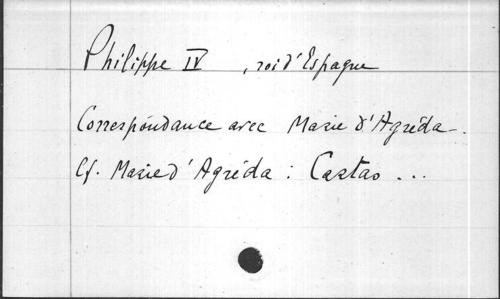 Philippe IV , roi d'Espagne
Correspondance avec Marie d'Agréda.
Cf. Marie d'Agréda : Cartas ...